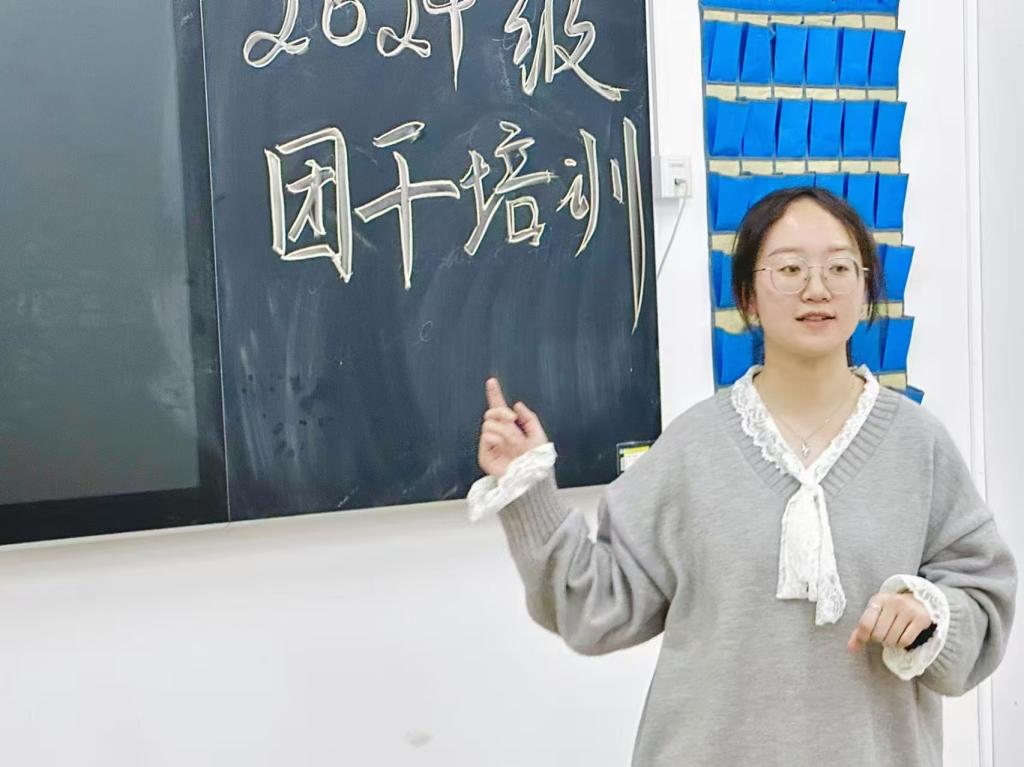 2024级
团干培训